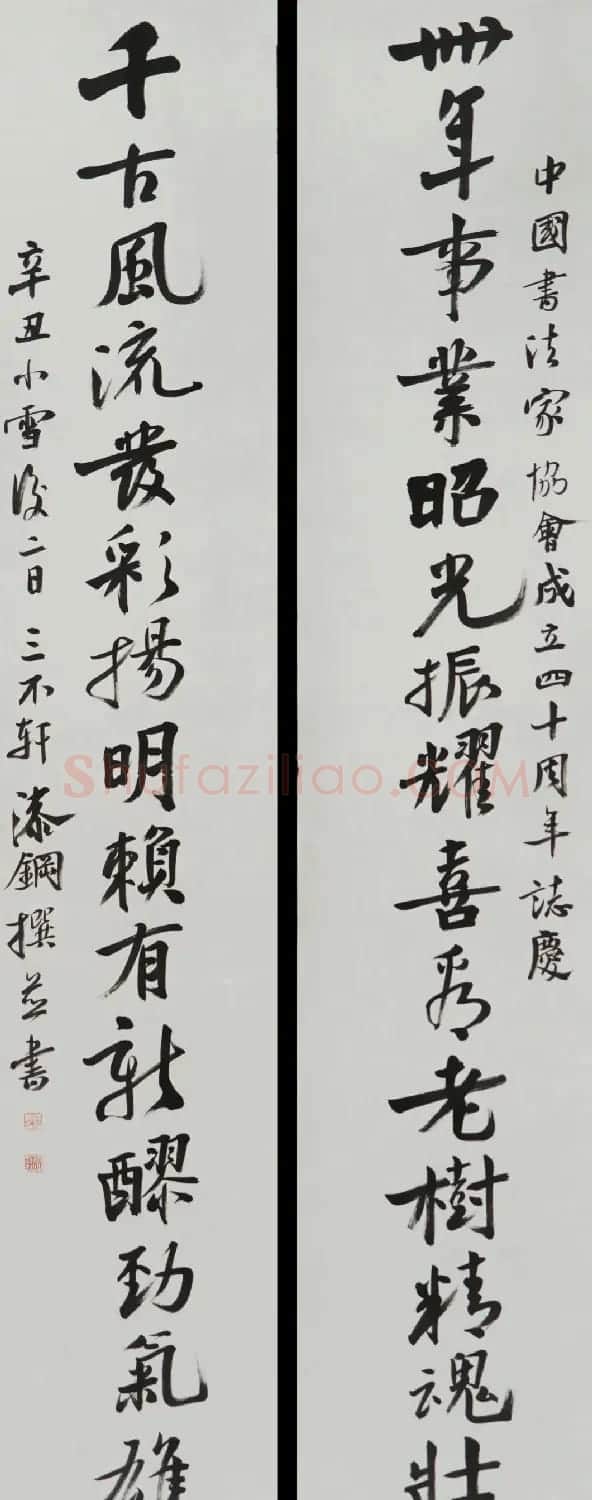 中國書法家協會成立四十周年誌慶
卌年事業昭光振耀喜看老樹精魂壯
千古風流發彩揚明賴有新醪勁氣雄
辛丑小雪後二日三不軒漆鋼撰並書
Shufaziliao.COM